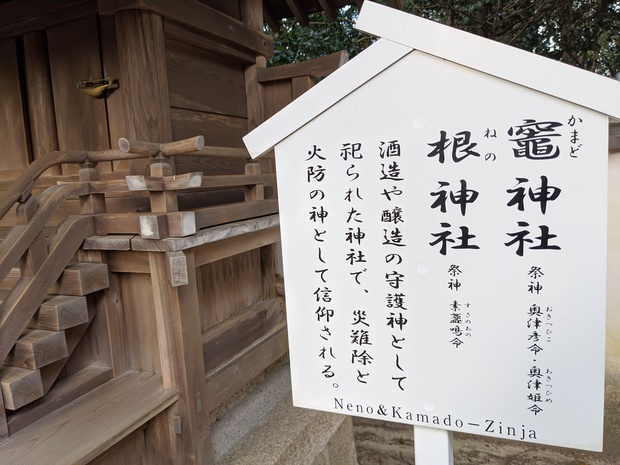 かまど
竈神社
祭神 奥津彦命・奥津姫命
おきつひこ おきつひめ
ねの
根神社
祭神 素盞嗚命
すさのおの
酒造や醸造の守護神として
祀られた神社で、災難除と
火防の神として信仰される。
Neno&Kamado－Zinja